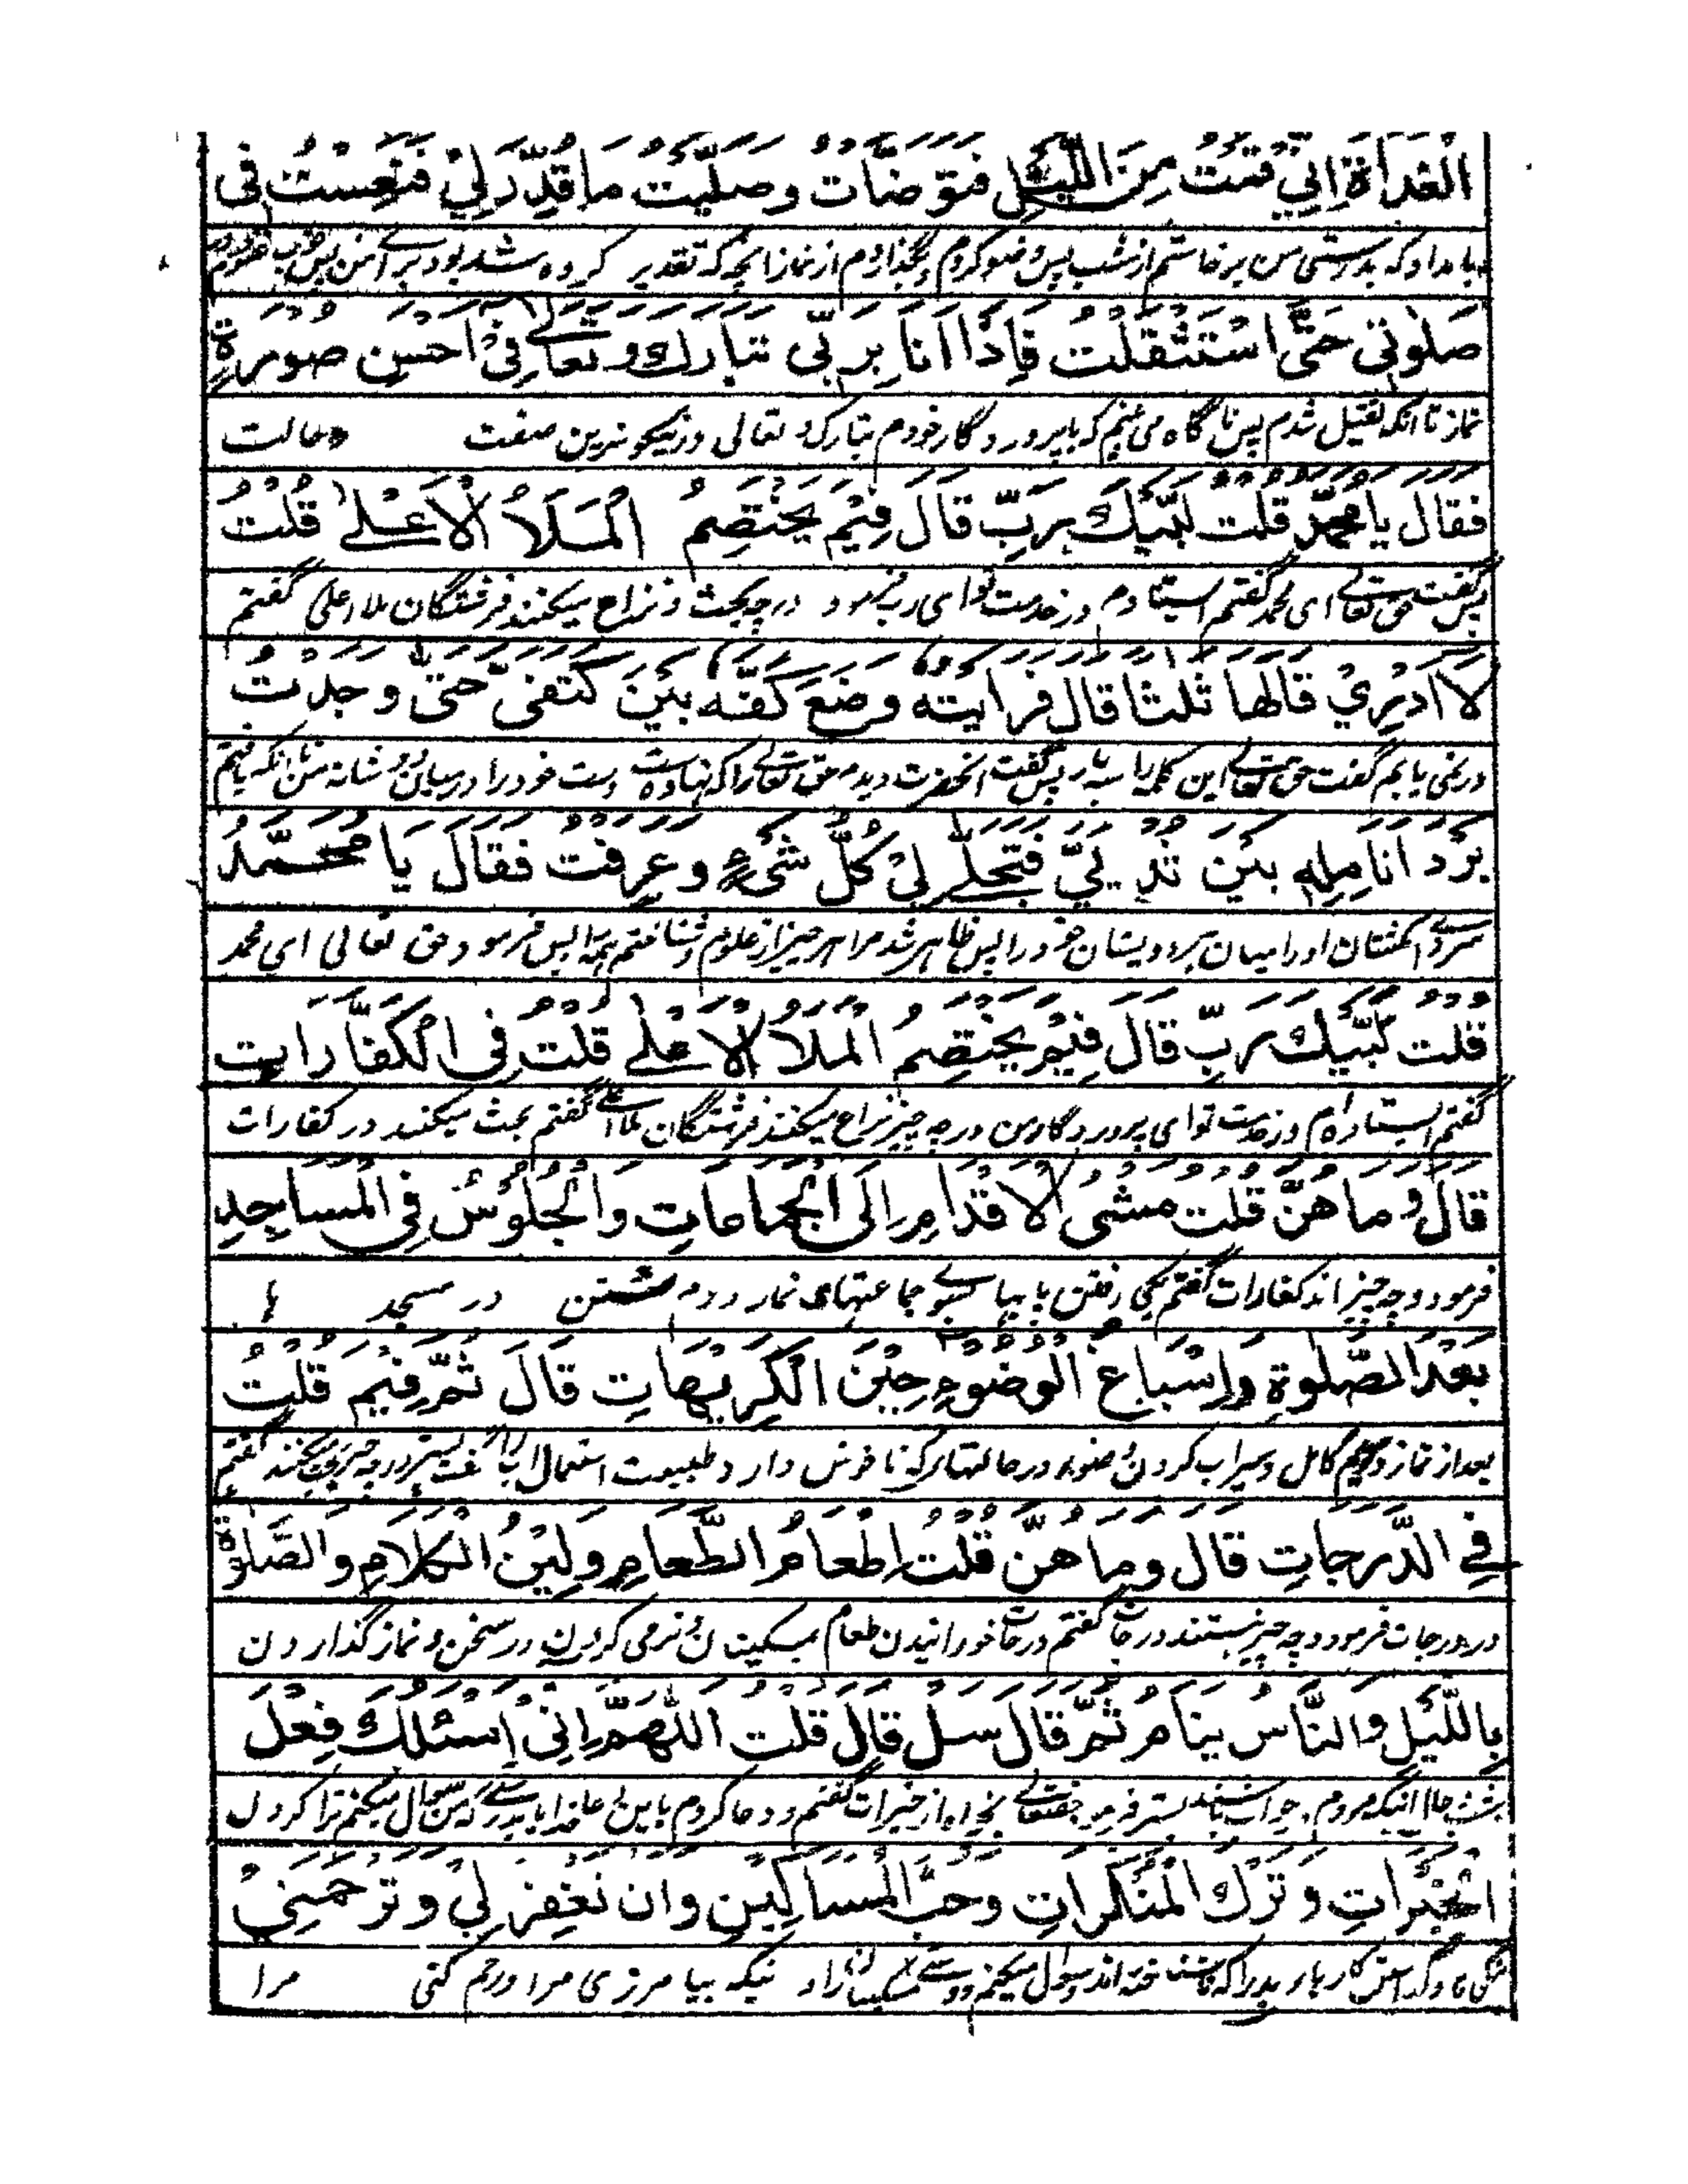 الْغَدَاةَ اِنِّي قُمْتُ مِنَ اللَّيْلِ فَتَوَضَّأْتُ وَصَلَّيْتُ مَا قُدِّرَ لِيْ فَنَعِسْتُ فِى
بامداد که بدرستی من برخاستم از شب پس وضو کردم و بگذاردم از نماز آنچه که تقدیر کرده شده بود برای من پس
صَلٰوتِى حَتَّى اسْتَثْقَلْتُ فَاِذَا اَنَا بِرَبِّى تَبَارَكَ وَتَعَالٰى فِىْ اَحْسَنِ صُوْرَةٍ
نماز تا آنکه ثقیل شدم پس ناگاه می بینم که با پروردگار خودم تبارک و تعالی در نیکوترین صفت و حالت
فَقَالَ يَا مُحَمَّدُ قُلْتُ لَبَّيْكَ رَبِّ قَالَ فِيْمَ يَخْتَصِمُ الْمَلَأُ الْاَعْلٰى قُلْتُ
پس گفت حق تعالی ای محمد گفتم استادم در خدمت تو ای رب فرمود در چه بحث و نزاع میکنند فرشتگان ملا اعلی گفتم
لَا اَدْرِيْ قَالَهَا ثَلٰثًا قَالَ فَرَاَيْتُهٗ وَضَعَ كَفَّهٗ بَيْنَ كَتِفَىَّ حَتّٰى وَجَدْتُ
در نمی یابم گفت حق تعالی این کلمه را سه بار پس گفت آنحضرت دیدم حق تعالی را که نهاده است دست خود را درمیان دو شانه من تا آنکه یافتم
بَرْدَ اَنَامِلِهٖ بَيْنَ ثَدْيَيَّ فَتَجَلّٰى لِيْ كُلُّ شَىْءٍ وَعَرَفْتُ فَقَالَ يَا مُحَمَّدُ
سردی انگشتان او را میان هر دو پستان خود را پس ظاهر شد مرا هر چیز از علوم و شناختم همه را پس فرمود حق تعالی ای محمد
قُلْتُ لَبَّيْكَ رَبِّ قَالَ فِيْمَ يَخْتَصِمُ الْمَلَأُ الْاَعْلٰى قُلْتُ فِى الْكَفَّارَاتِ
گفتم ایستاده ام در خدمت تو ای پروردگار من در چه چیز نزاع میکنند فرشتگان ملا اعلی گفتم بحث میکنند در کفارات
قَالَ وَمَا هُنَّ قُلْتُ مَشْىُ الْاَقْدَامِ اِلَى الْجَمَاعَاتِ وَالْجُلُوْسُ فِى الْمَسَاجِدِ
فرمود و چه چیز اند کفارات گفتم یکی رفتن با پیها بسوی جماعتهای نماز دوم نشستن در مسجد ها
بَعْدَ الصَّلٰوةِ وَاِسْبَاغُ الْوُضُوْءِ حِيْنَ الْكَرِيْهَاتِ قَالَ ثُمَّ فِيْمَ قُلْتُ
بعد از نماز و سیوم کامل و سیراب کردن وضو در حالتهای که ناخوش دارد طبیعت استعمال آب را گفت پستر در چه چیز بحث میکنند گفتم
فِي الدَّرَجَاتِ قَالَ وَمَا هُنَّ قُلْتُ اِطْعَامُ الطَّعَامِ وَلِيْنُ الْكَلَامِ وَالصَّلٰوةُ
در درجات فرمود و چه چیز هستند درجات گفتم درجات خورانیدن طعام بمسکینان و نرمی کردن در سخن و نماز گذاردن
بِاللَّيْلِ وَالنَّاسُ نِيَامٌ ثُمَّ قَالَ سَلْ قَالَ قُلْتُ اللّٰهُمَّ اِنِّىْ اَسْئَلُكَ فِعْلَ
بشب حال آنیکه مردم خواب باشند پستر فرمود حقتعالی بخواه از خیرات گفتم و دعا کردم باین دعا خدایا بدرستی که من سوال میکنم ترا کردن
الْخَيْرَاتِ وَتَرْكَ الْمُنْكَرَاتِ وَحُبَّ الْمَسَاكِيْنِ وَاَنْ تَغْفِرَ لِيْ وَتَرْحَمَنِيْ
نیکی ها و گذاشتن کارهای بد را که سوال میکنم دوستی مسکینان را و نیکه بیا مرزی مرا و رحم کنی مرا